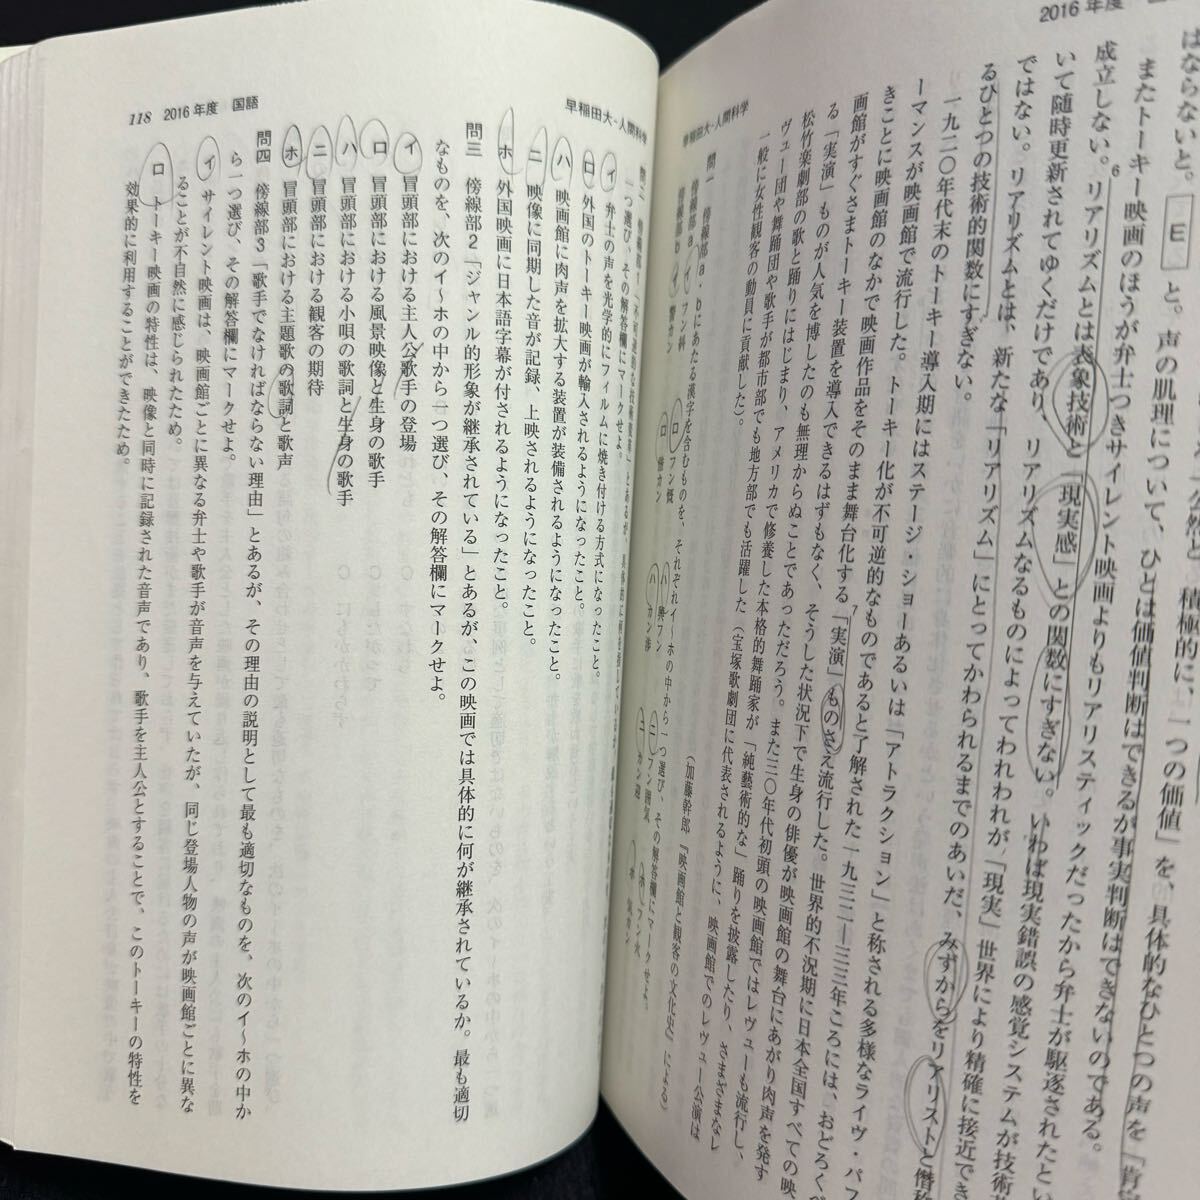 2016年度
はならないと。
E
と。声の肌理について、ひとは価値判断はできるが事実判断はできないのである。
積極的に、一つの価値」を、具体的なひとつの声を「肯
またトーキー映画のほうが弁士つきサイレント映画よりもリアリスティックだったから弁士が駆逐されたとい
成立しない。リアリズムとは表象技術と「現実感」との関数にすぎない。いわば現実錯誤の感覚システムが技術
6
いて随時更新されてゆくだけであり、リアリズムなるものによってわれわれが「現実」世界により精確に接近でき
ではない。リアリズムとは、新たな「リアリズム」にとってかわられるまでのあいだ、みずからをリアリストと僭称
るひとつの技術的関数にすぎない。
一九二〇年代末のトーキー導入期にはステージ・ショーあるいは「アトラクション」と称される多様なライヴ・パフ
ーマンスが映画館で流行した。トーキー化が不可逆的なものであると了解された一九三二―三三年ころには、おどろくべ
きことに映画館のなかで映画作品をそのまま舞台化する「実演」ものさえ流行した。世界的不況期に日本全国すべての映
7
画館がすぐさまトーキー装置を導入できるはずもなく、そうした状況下で生身の俳優が映画館の舞台にあがり肉声を発す
る「実演」ものが人気を博したのも無理からぬことであっただろう。また三〇年代初頭の映画館ではレヴューも流行し、
松竹楽劇部の歌と踊りにはじまり、アメリカで修養した本格的舞踊家が「純藝術的な」踊りを披露したり、さまざまなレ
ヴュー団や舞踊団や歌手が都市部でも地方部でも活躍した(宝塚歌劇団に代表されるように、映画館でのレヴュー公演は
一般に女性観客の動員に貢献した)。
(加藤幹郎『映画館と観客の文化史』による)
早稲田大-人間科学
問一 傍線部a・bにあたる漢字を含むものを、それぞれイ～ホの中から一つ選び、その解答欄にマークせよ。
傍線部a イ フン料 ロ フン慨 ハ 興フン ニ フン囲気 ホ フン水
傍線部b イ 習カン ロ 借カン ハ カン渉 ニ カン迎 ホ
早稲田大-人間科学
118 2016年度 国語
問二 傍線部1「不可逆的な技術変革」とあるが、具体的に何を指しているか。
一つ選び、その解答欄にマークせよ。
イ 弁士の声を光学的にフィルムに焼き付ける方式になったこと。
ロ 外国のトーキー映画が輸入されるようになったこと。
ハ 映画館に肉声を拡大する装置が装備されるようになったこと。
ニ 映像に同期した音が記録、上映されるようになったこと。
ホ 外国映画に日本語字幕が付されるようになったこと。
問三 傍線部2「ジャンル的形象が継承されている」とあるが、この映画では具体的に何が継承されているか。最も適切
なものを、次のイ～ホの中から一つ選び、その解答欄にマークせよ。
イ 冒頭部における主人公歌手の登場
ロ 冒頭部における風景映像と生身の歌手
ハ 冒頭部における小唄の歌詞と生身の歌手
ニ 冒頭部における観客の期待
ホ 冒頭部における主題歌の歌詞と歌声
問四 傍線部3「歌手でなければならない理由」とあるが、その理由の説明として最も適切なものを、次のイ～ホの中か
ら一つ選び、その解答欄にマークせよ。
イ サイレント映画は、映画館ごとに異なる弁士や歌手が音声を与えていたが、同じ登場人物の声が映画館ごとに異な
ることが不自然に感じられたため。
ロ トーキー映画の特性は、映像と同時に記録された音声であり、歌手を主人公とすることで、このトーキーの特性を
効果的に利用することができたため。